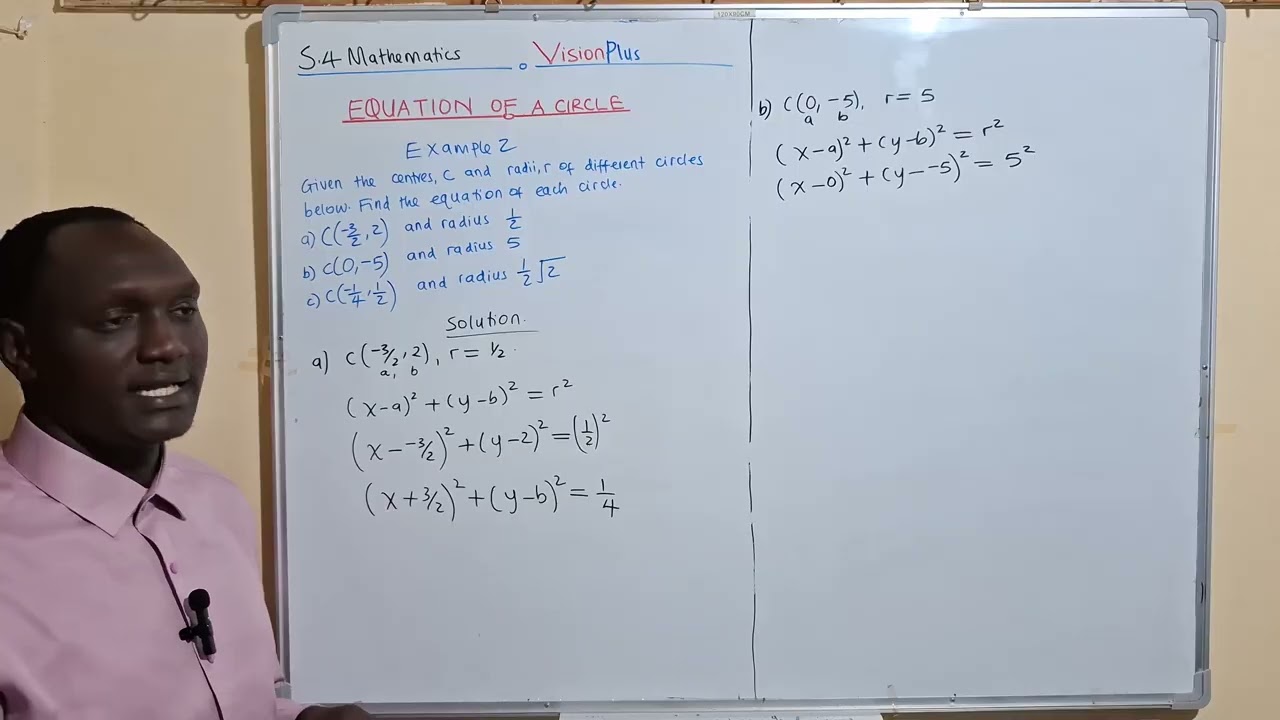 120X90CM
S.4 Mathematics VisionPlus
EQUATION OF A CIRCLE
Example 2
Given the centres, C and radii, r of different circles
below. Find the equation of each circle.
a) C(-3/2, 2) and radius 1/2
b) C(0, -5) and radius 5
c) C(-1/4, 1/2) and radius 1/2 √2
Solution.
a) C(-3/2, 2), r = 1/2.
a, b
(x-a)² + (y-b)² = r²
(x - -3/2)² + (y-2)² = (1/2)²
(x + 3/2)² + (y-b)² = 1/4
b) C(0, -5), r = 5
a b
(x-a)² + (y-b)² = r²
(x-0)² + (y - -5)² = 5²